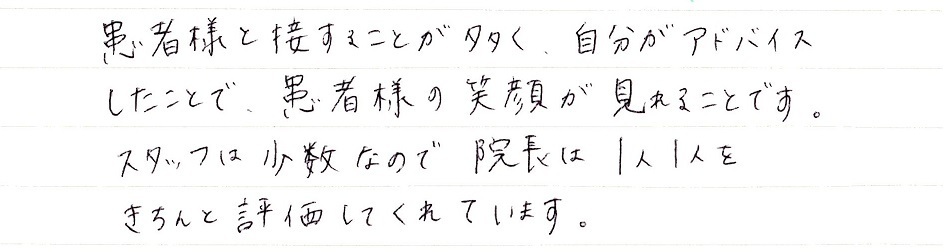 患者様と接することが多く、自分がアドバイス
したことで、患者様の笑顔が見れることです。
スタッフは少数なので院長は1人1人を
きちんと評価してくれています。